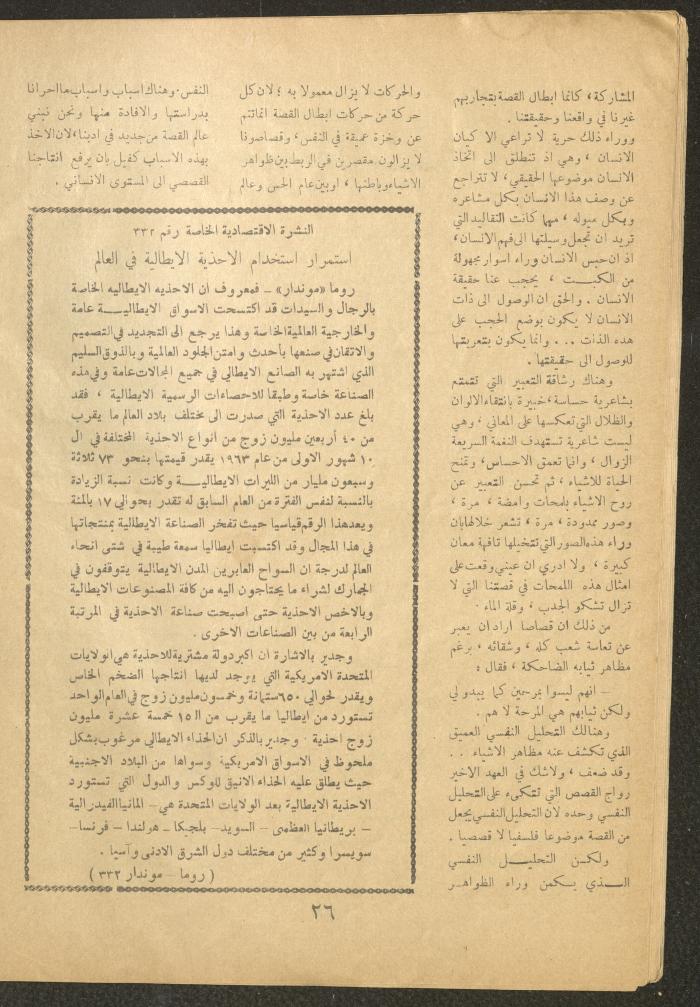 المشاركة، كانما ابطال القصة بتجاربهم
غيرنا في واقعنا وحقيقتنا .
ووراء ذلك حرية لا تراعي الا كيان
الانسان ، وهي اذ تنطلق الى اتخاذ
الانسان موضوعها الحقيقي، لا تتراجع
عن وصف هذا الانسان بكل مشاعره
وبكل ميوله ، مهما كانت التقاليد التي
تريد ان تجعل وسيلتها الى فهم الانسان،
اذ ان حبس الانسان وراء اسوار مجهولة
من الكبت ، يحجب عنا حقيقة
الانسان . والحق ان الوصول الى ذات
الانسان لا يكون بوضع الحجب على
هذه الذات ... وانما يكون بتعريتها
للوصول الى حقيقتها .
وهناك رشاقة التعبير التي تتمتع
بشاعرية حساسة، خبيرة بانتقاء الالوان
والظلال التي تعكسها على المعاني ، وهي
ليست شاعرية تستهدف النغمة السريعة
الزوال ، وانما تعمق الاحساس، وتمنح
الحياة للاشياء ، ثم تحسن التعبير عن
روح الاشياء بلمحات وامضة ، مرة ،
وصور ممدودة ، مرة ، تشعر خلالها بان
وراء هذه الصور التي نتخيلها تافهة معان
كبيرة ، ولا ادري ان عيني وقعت على
امثال هذه اللمحات في قصتنا التي لا
تزال تشكو الجدب ، وقلة الماء .
من ذلك ان قصاصا اراد ان يعبر
عن تعاسة شعب كله ، وشقائه ، برغم
مظاهر ثيابه الضاحكة ، فقال :
– انهم ليسوا بمرحين كما يبدو لي
ولكن ثيابهم هي المرحة لا هم .
وهنالك التحليل النفسي العميق
الذي تكشف عنه مظاهر الاشياء . .
وقد ضعف ، ولاشك في العهد الاخير
رواج القصص التي تتكىء على التحليل
النفسي وحده لان التحليل النفسي يجعل
من القصة موضوعا فلسفيا لا قصصيا .
ولكن التحليل النفسي
الذي يكمن وراء الظواهر
والحركات لا يزال معمولا به ؛ لان كل
حركة من حركات ابطال القصة انما تنم
عن وخزة عميقة في النفس، وقصاصونا
لا يزالون مقصرين في الربط بين ظواهر
الاشياء وباطنها ، او بين عالم الحس وعالم
النفس. وهناك اسباب واسباب ما احرانا
بدراستها والافادة منها ونحن نبني
عالم القصة من جديد في ادبنا، لان الاخذ
بهذه الاسباب كفيل بان يرفع انتاجنا
القصصي الى المستوى الانساني .
النشرة الاقتصادية الخاصة رقم ٣٣٢
استمرار استخدام الاحذية الايطالية في العالم
روما «موندار» – فمعروف ان الاحذيه الايطاليه الخاصة
بالرجال والسيدات قد اكتسحت الاسواق الايطاليـــة عامة
والخارجية العالمية الخاصة وهذا يرجع الى التجديد في التصميم
والاتقان في صنعها بأحدث وامتن الجلود العالمية وبالذوق السليم
الذي اشتهر به الصانع الايطالي في جميع المجالات عامة وفي هذه
الصناعة خاصة وطبقا للاحصاءات الرسمية الايطالية ، فقد
بلغ عدد الاحذية التي صدرت الى مختلف بلاد العالم ما يقرب
من ٤٠ أربعين مليون زوج من انواع الاحذية المختلفة في ال
١٠ شهور الاولى من عام ١٩٦٣ يقدر قيمتها بنحو ٧٣ ثلاثة
وسبعون مليار من الليرات الايطاليـــة وكانت نسبة الزيادة
بالنسبة لنفس الفترة من العام السابق له تقدر بحوالي ١٧ بالمئة
ويعد هذا الرقم قياسيا حيث تفخر الصناعة الايطالية بمنتجاتها
في هذا المجال وقد اكتسبت ايطاليا سمعة طيبة في شتى انحاء
العالم لدرجة ان السواح العابرين المدن الايطالية يتوقفون في
الجمارك لشراء ما يحتاجون اليه من كافة المصنوعات الايطالية
وبالاخص الاحذية حتى اصبحت صناعة الاحذية في المرتبة
الرابعة من بين الصناعات الاخرى .
وجدير بالاشارة ان اكبر دولة مشترية للاحذية هي الولايات
المتحدة الامريكية التي يوجد لديها انتاجها الضخم الخاص
ويقدر لحوالي ٦٥٠ ستمائة وخمسون مليون زوج في العام الواحد
تستورد من ايطاليا ما يقرب من الـ ١٥ خمسة عشرة مليون
زوج احذية . وجدير بالذكر ان الحذاء الايطالي مرغوب بشكل
ملحوظ في الاسواق الامريكية وسواها من البلاد الاجنبية
حيث يطلق عليه الحذاء الانيق للوكس والدول التي تستورد
الاحذية الايطالية بعد الولايات المتحدة هي – المانيا الفيدرالية
– بريطانيا العظمى – السويد – بلجيكا – هولندا – فرنسا –
سويسرا وكثير من مختلف دول الشرق الادنى وآسيا .
( روما – موندار ٣٣٢ )
٢٦